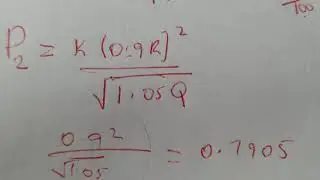 P₂ = K (0.9R)²
√1.05Q
0.9²
√1.05 = 0.7905
100